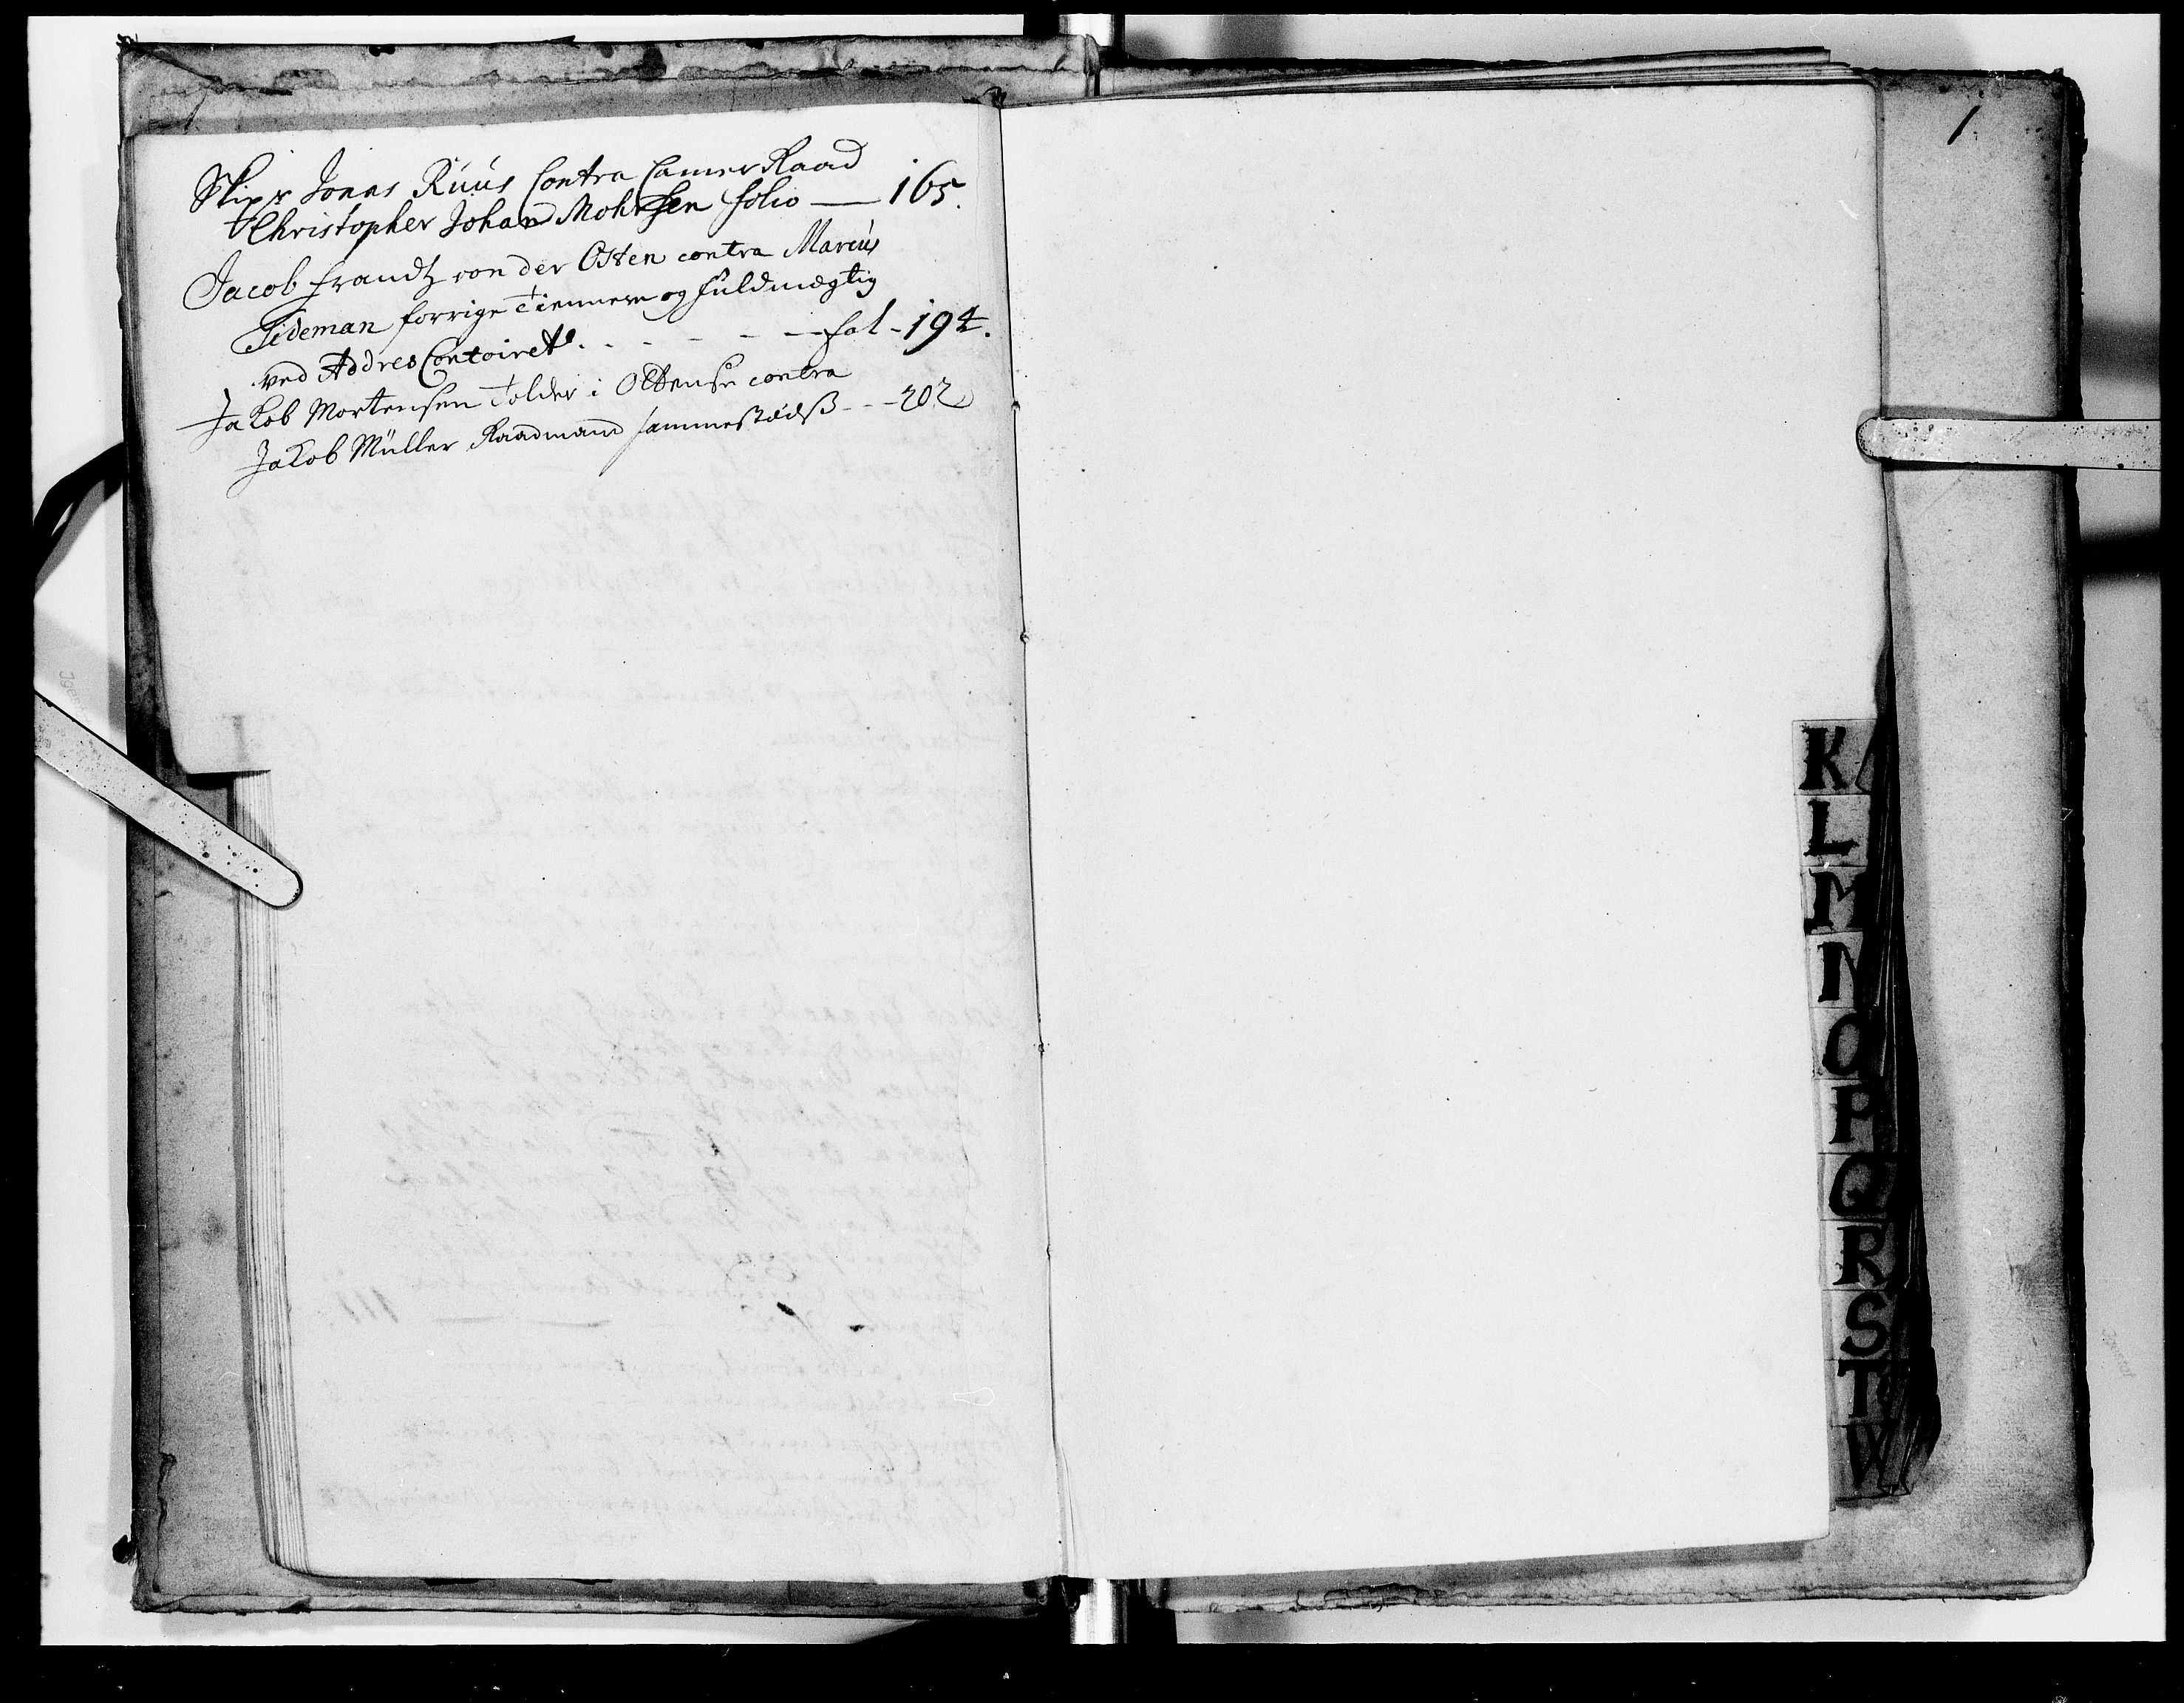 Skipr Jonas Ruus Contra Camer Raad
Christopher Johan Mohrsen folio — 165.
Jacob frandtz von der Osten contra Marcus
Tideman forrige Tiennere og fuldmægtig
ved Addres Contoiret. - - - - fol - 194.
Jakob Mortensen Tolder i Ottense contra
Jakob Müller Raadmand sammestædsß - - - 202
1
K
L
M
N
O
P
Q
R
S
T
W